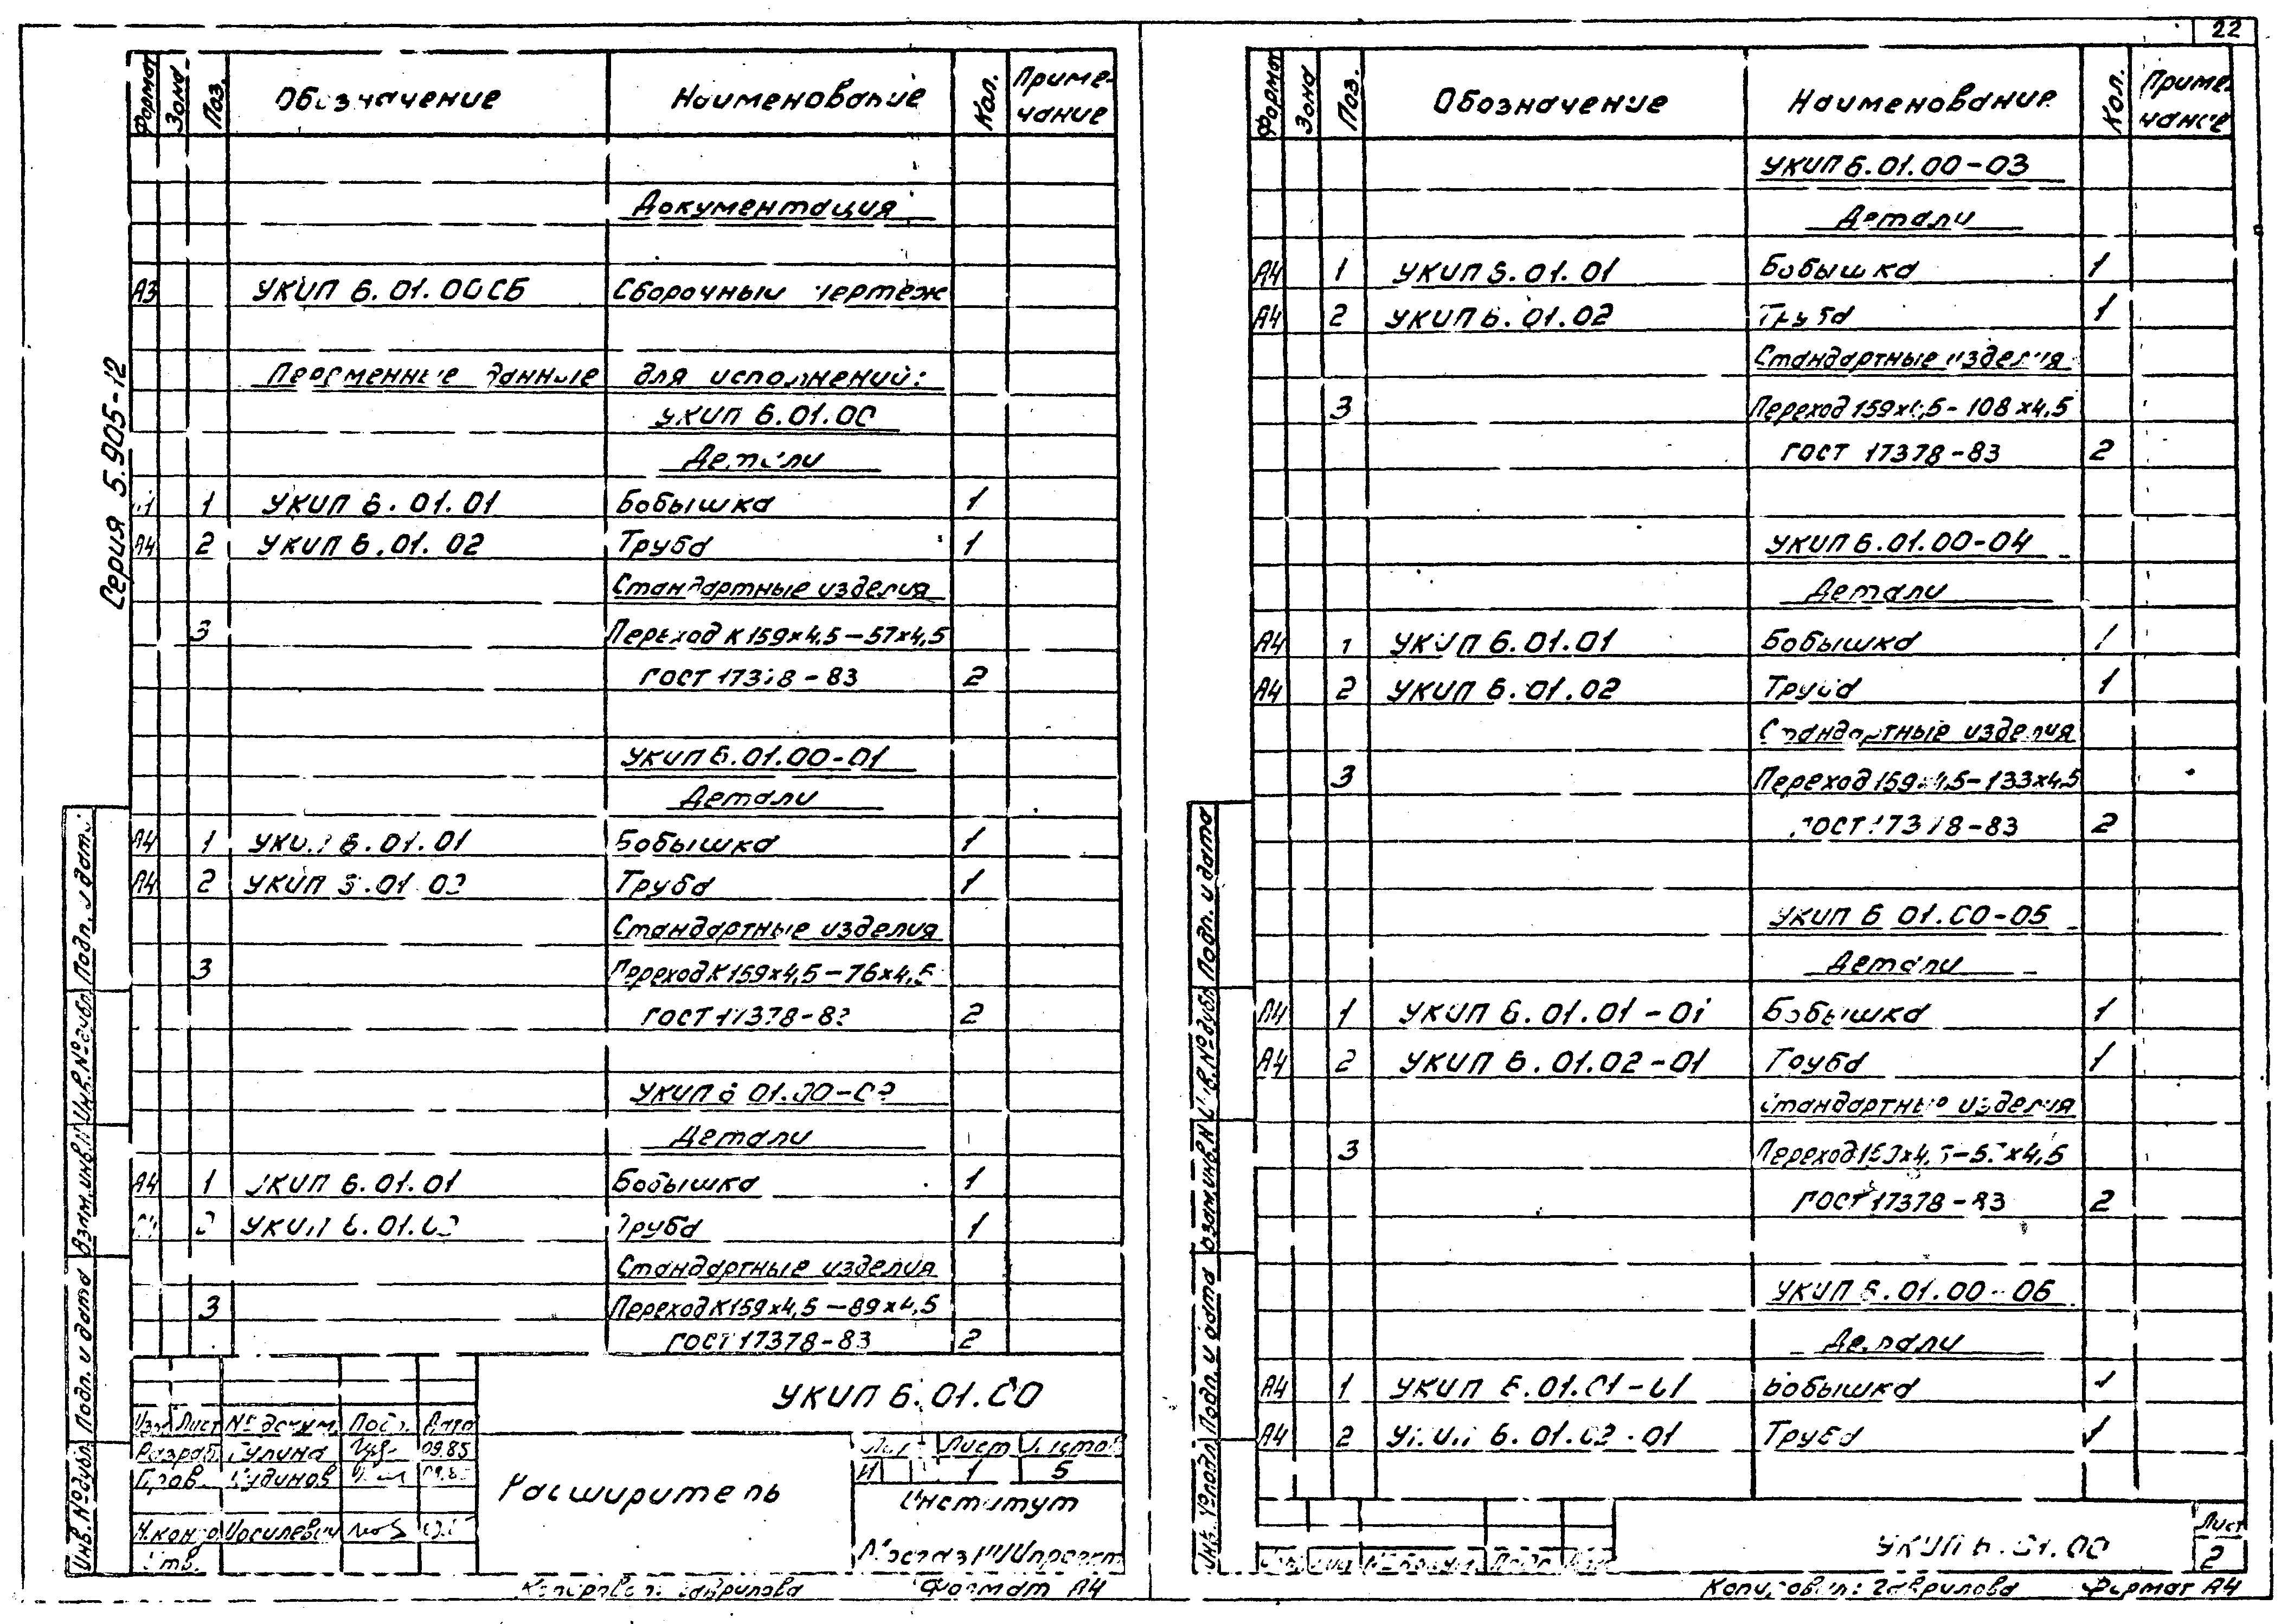 22
Серия 5.905-12
Формат Зона Поз. Обозначение Наименование Кол. Приме-
чание
Документация
А3 УКИП 6.01.00СБ Сборочный чертеж
Переменные данные для исполнений:
УКИП 6.01.00
Детали
1 УКИП 6.01.01 Бобышка 1
А4 2 УКИП 6.01.02 Труба 1
Стандартные изделия
3 Переход К159х4,5-57х4,5
ГОСТ 17378-83 2
УКИП 6.01.00-01
Детали
А4 1 УКИП 6.01.01 Бобышка 1
А4 2 УКИП 6.01.02 Труба 1
Стандартные изделия
3 Переход К159х4,5-76х4,5
ГОСТ 17378-83 2
УКИП 6.01.00-02
Детали
А4 1 УКИП 6.01.01 Бобышка 1
А4 2 УКИП 6.01.02 Труба 1
Стандартные изделия
3 Переход К159х4,5-89х4,5
ГОСТ 17378-83 2
Инв. № дубл. Подп. и дата Взам. инв. № Инв. № дубл. Подп. и дата
УКИП 6.01.00
Изм Лист № докум. Подп. Дата
Разраб. Гулина 09.85
Пров. Кудинов 09.85
Н.контр
Утв.
Расширитель
Лит Лист Листов
И 1 5
Институт
МосгазНИИпроект
Копировал: Гаврилова Формат А4
Формат Зона Поз. Обозначение Наименование Кол. Приме-
чание
УКИП 6.01.00-03
Детали
А4 1 УКИП 6.01.01 Бобышка 1
А4 2 УКИП 6.01.02 Труба 1
Стандартные изделия
3 Переход 159х4,5-108х4,5
ГОСТ 17378-83 2
УКИП 6.01.00-04
Детали
А4 1 УКИП 6.01.01 Бобышка 1
А4 2 УКИП 6.01.02 Труба 1
Стандартные изделия
3 Переход 159х4,5-133х4,5
ГОСТ 17378-83 2
УКИП 6.01.00-05
Детали
А4 1 УКИП 6.01.01-01 Бобышка 1
А4 2 УКИП 6.01.02-01 Труба 1
Стандартные изделия
3 Переход 159х4,5-57х4,5
ГОСТ 17378-83 2
УКИП 6.01.00-06
Детали
А4 1 УКИП 6.01.01-01 Бобышка 1
А4 2 УКИП 6.01.02-01 Труба 1
Инв. № подл. Подп. и дата Взам. инв. № Инв. № дубл. Подп. и дата
Изм Лист № докум. Подп. Дата
УКИП 6.01.00
Лист
2
Копировал: Гаврилова Формат А4